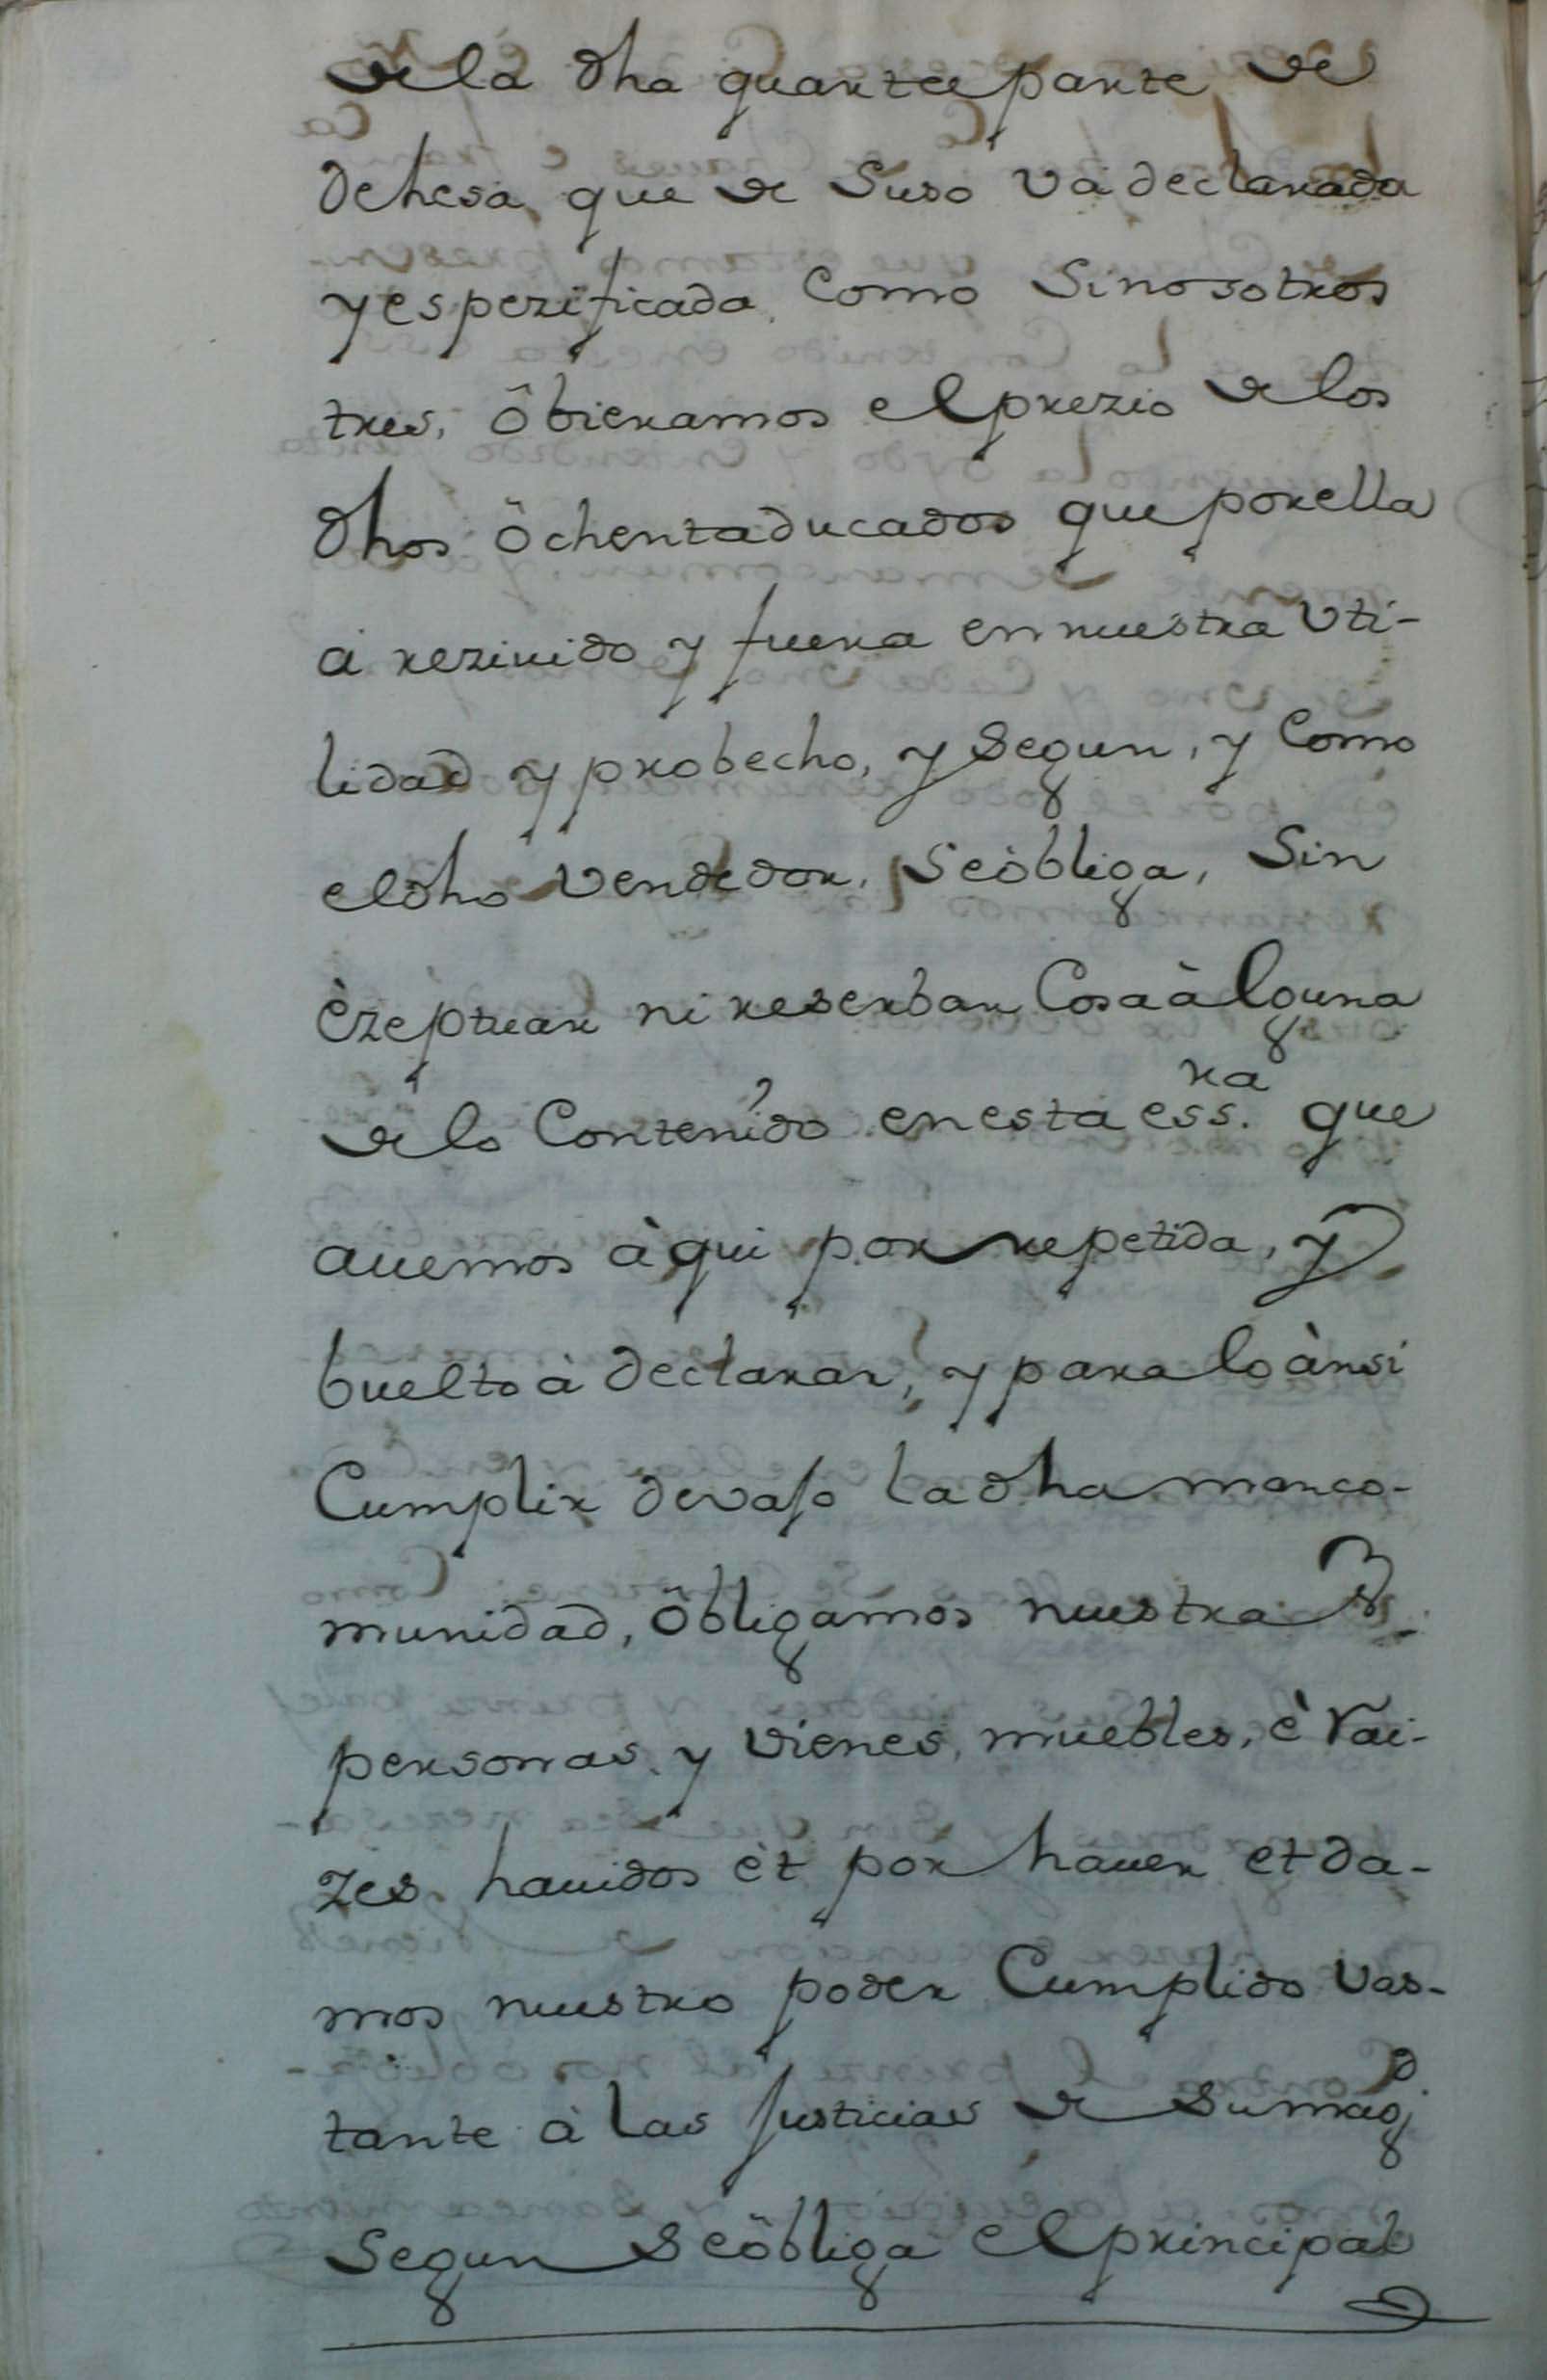 de la dha quarta parte de
dehesa, que de Suso va declarada
y espezificada, Como Sinosotros
tres, ôbieramos el prezio de los
dhos ôchentaducados que porella
a reziuido y fuera en nuestra Vti-
lidad y probecho, y Segun, y Como
eldho Vendedor, Seòbliga, Sin
èzeptuar ni reserbar Cosaàlguna
de lo Contenido enesta essra. que
auemos àqui por repetida, y
buelto à declarar, y para loànsi
Cumplir devajo ladha manco-
munidad, ôbligamos nuestras
personas, y vienes, muebles, è Rai-
zes, hauidos èt por hauer et da-
mos nuestro poder Cumplido Vas-
tante à las Justicias de Sumagd.
Segun Seôbliga el principal